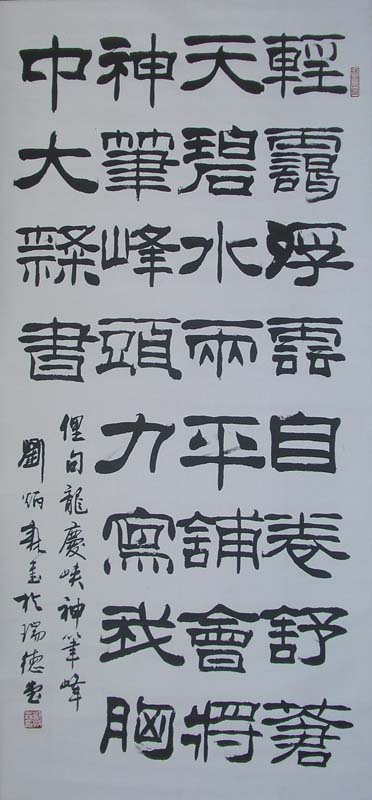 輕靄浮雲自卷舒蒼
天碧水兩平鋪會將
神筆峰頭力寫我胸
中大隸書
俚句龍慶峽神筆峰
劉炳森書於瑞德堂